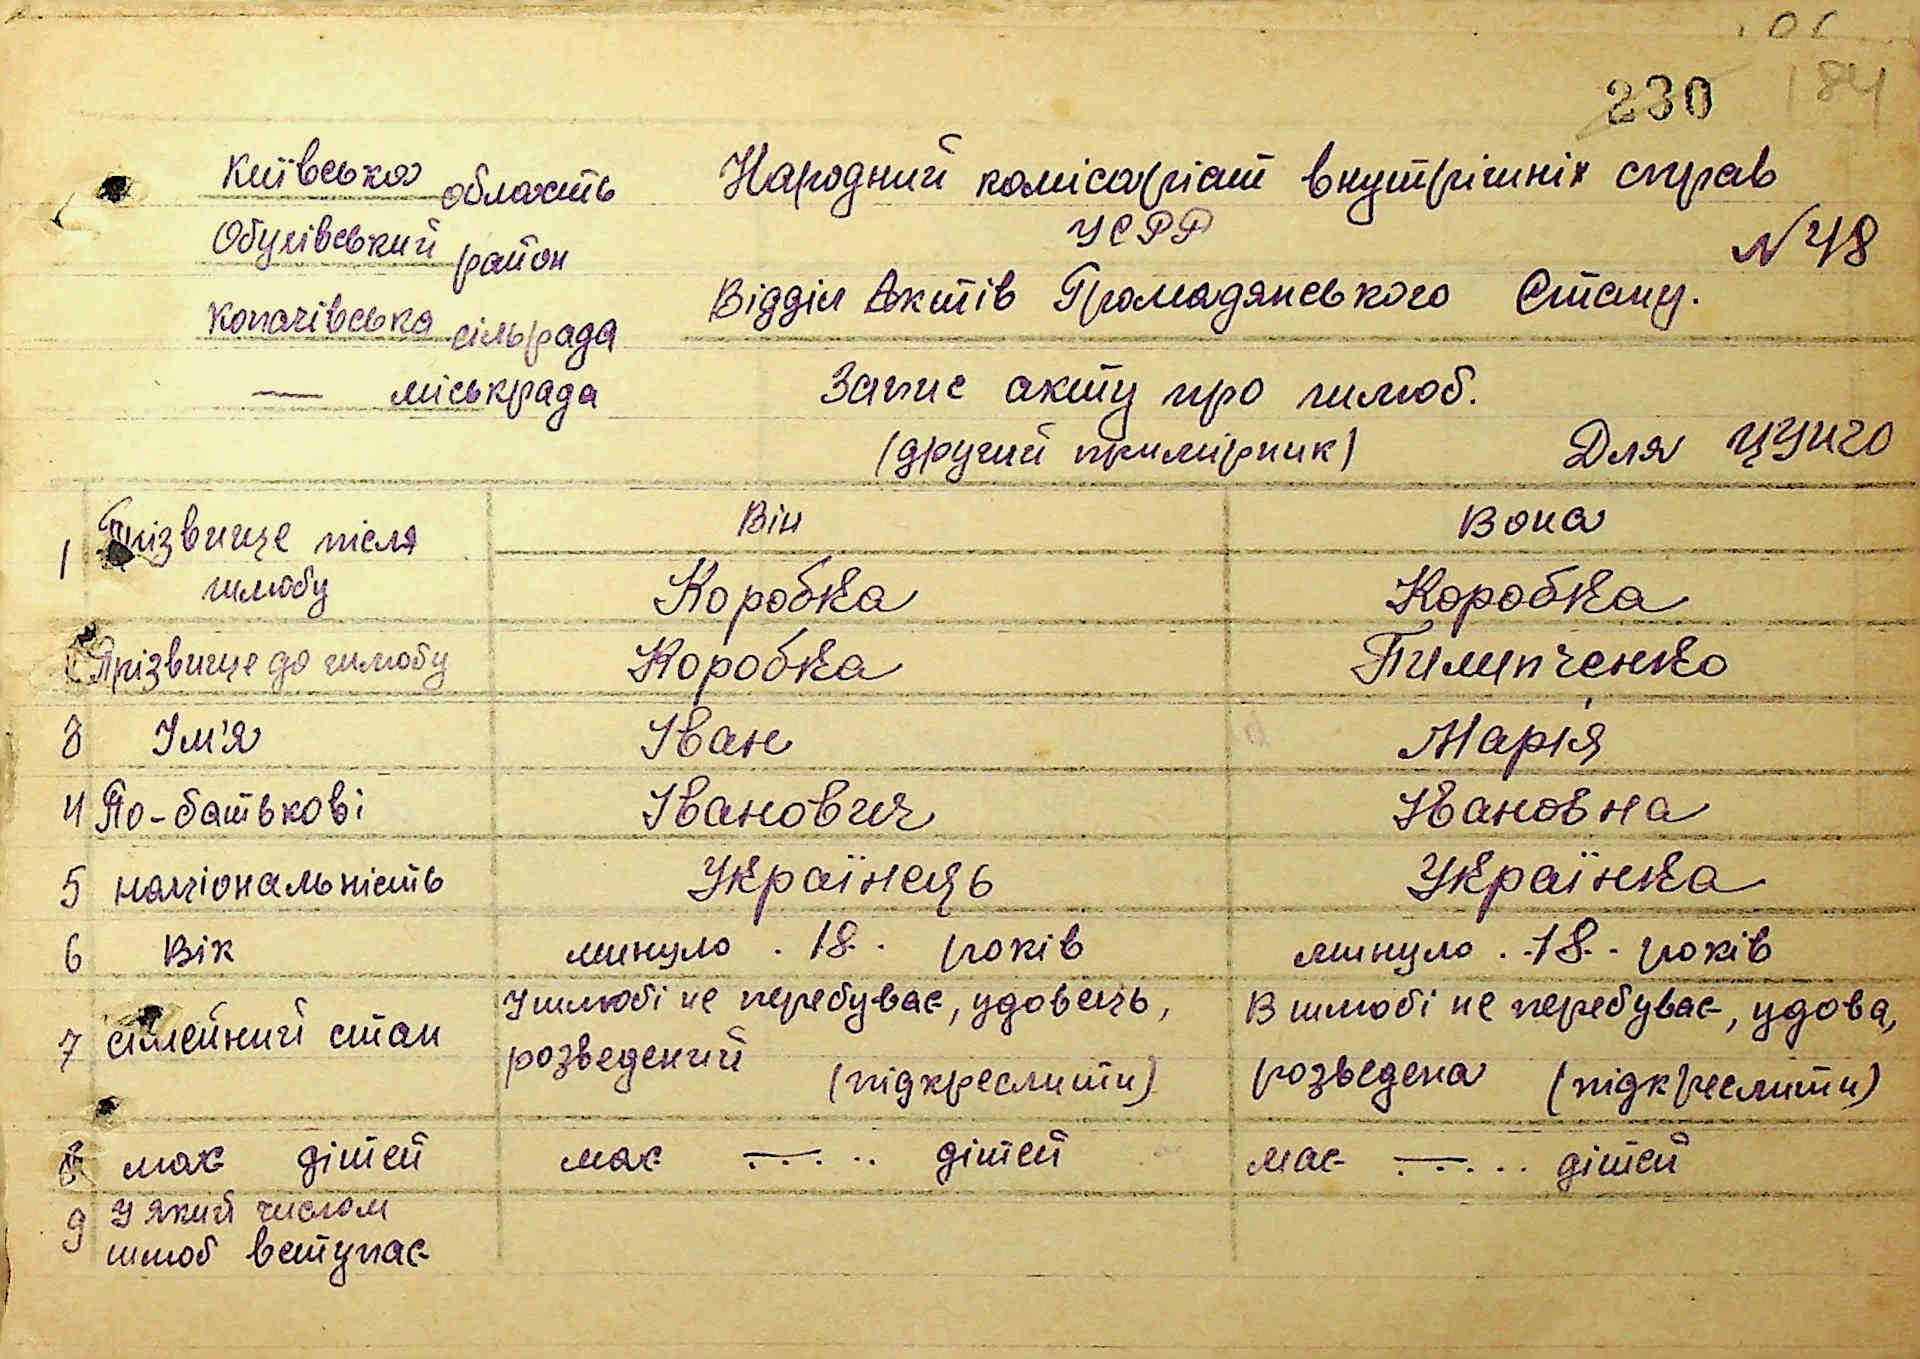 230 184
Київська область
Обухівський район
Копачівська сільрада
— міськрада
Народний комісаріат внутрішніх справ
УСРР
N 48
Відділ Актів Громадянського Стану.
Запис акту про шлюб.
(другий примірник)
Для ЦУНГО
Він Вона
1 Прізвище після шлюбу Коробка Коробка
Прізвище до шлюбу Коробка Пилипченко
3 Ім'я Іван Марія
4 По-батькові Іванович Івановна
5 національність Українець Українка
6 Вік минуло . 18 . років минуло . 18 . років
7 сімейний стан У шлюбі не перебуває, удовець, В шлюбі не перебуває, удова,
розведений (підкреслити) розведена (підкреслити)
8 має дітей має — дітей має — дітей
9 У який числом
шлюб вступає